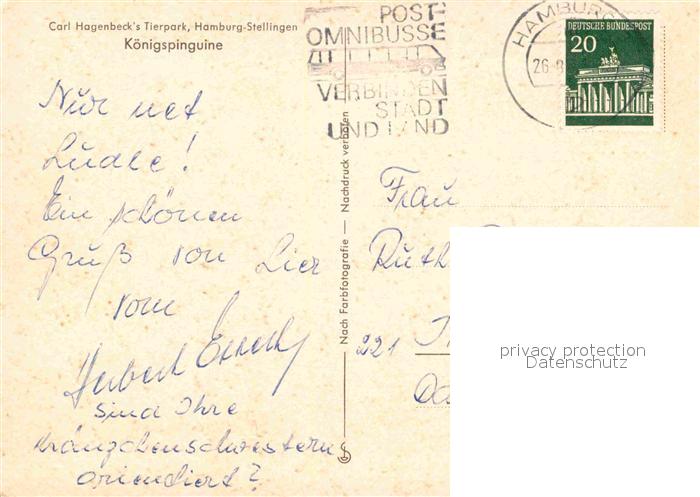 Carl Hagenbeck's Tierpark, Hamburg-Stellingen
Königspinguine
POST
OMNIBUSSE
VERBINDEN
STADT
UND LAND
HAMBURG
26
DEUTSCHE BUNDESPOST
20
Nur net
Ludle!
Ein schönen
Gruß von hier
vom
Herbert
sind Ihre
Kränzchenschwestern
orientiert?
Nach Farbfotografie — Nachdruck verboten
Frau
Ruth
221
privacy protection
Datenschutz